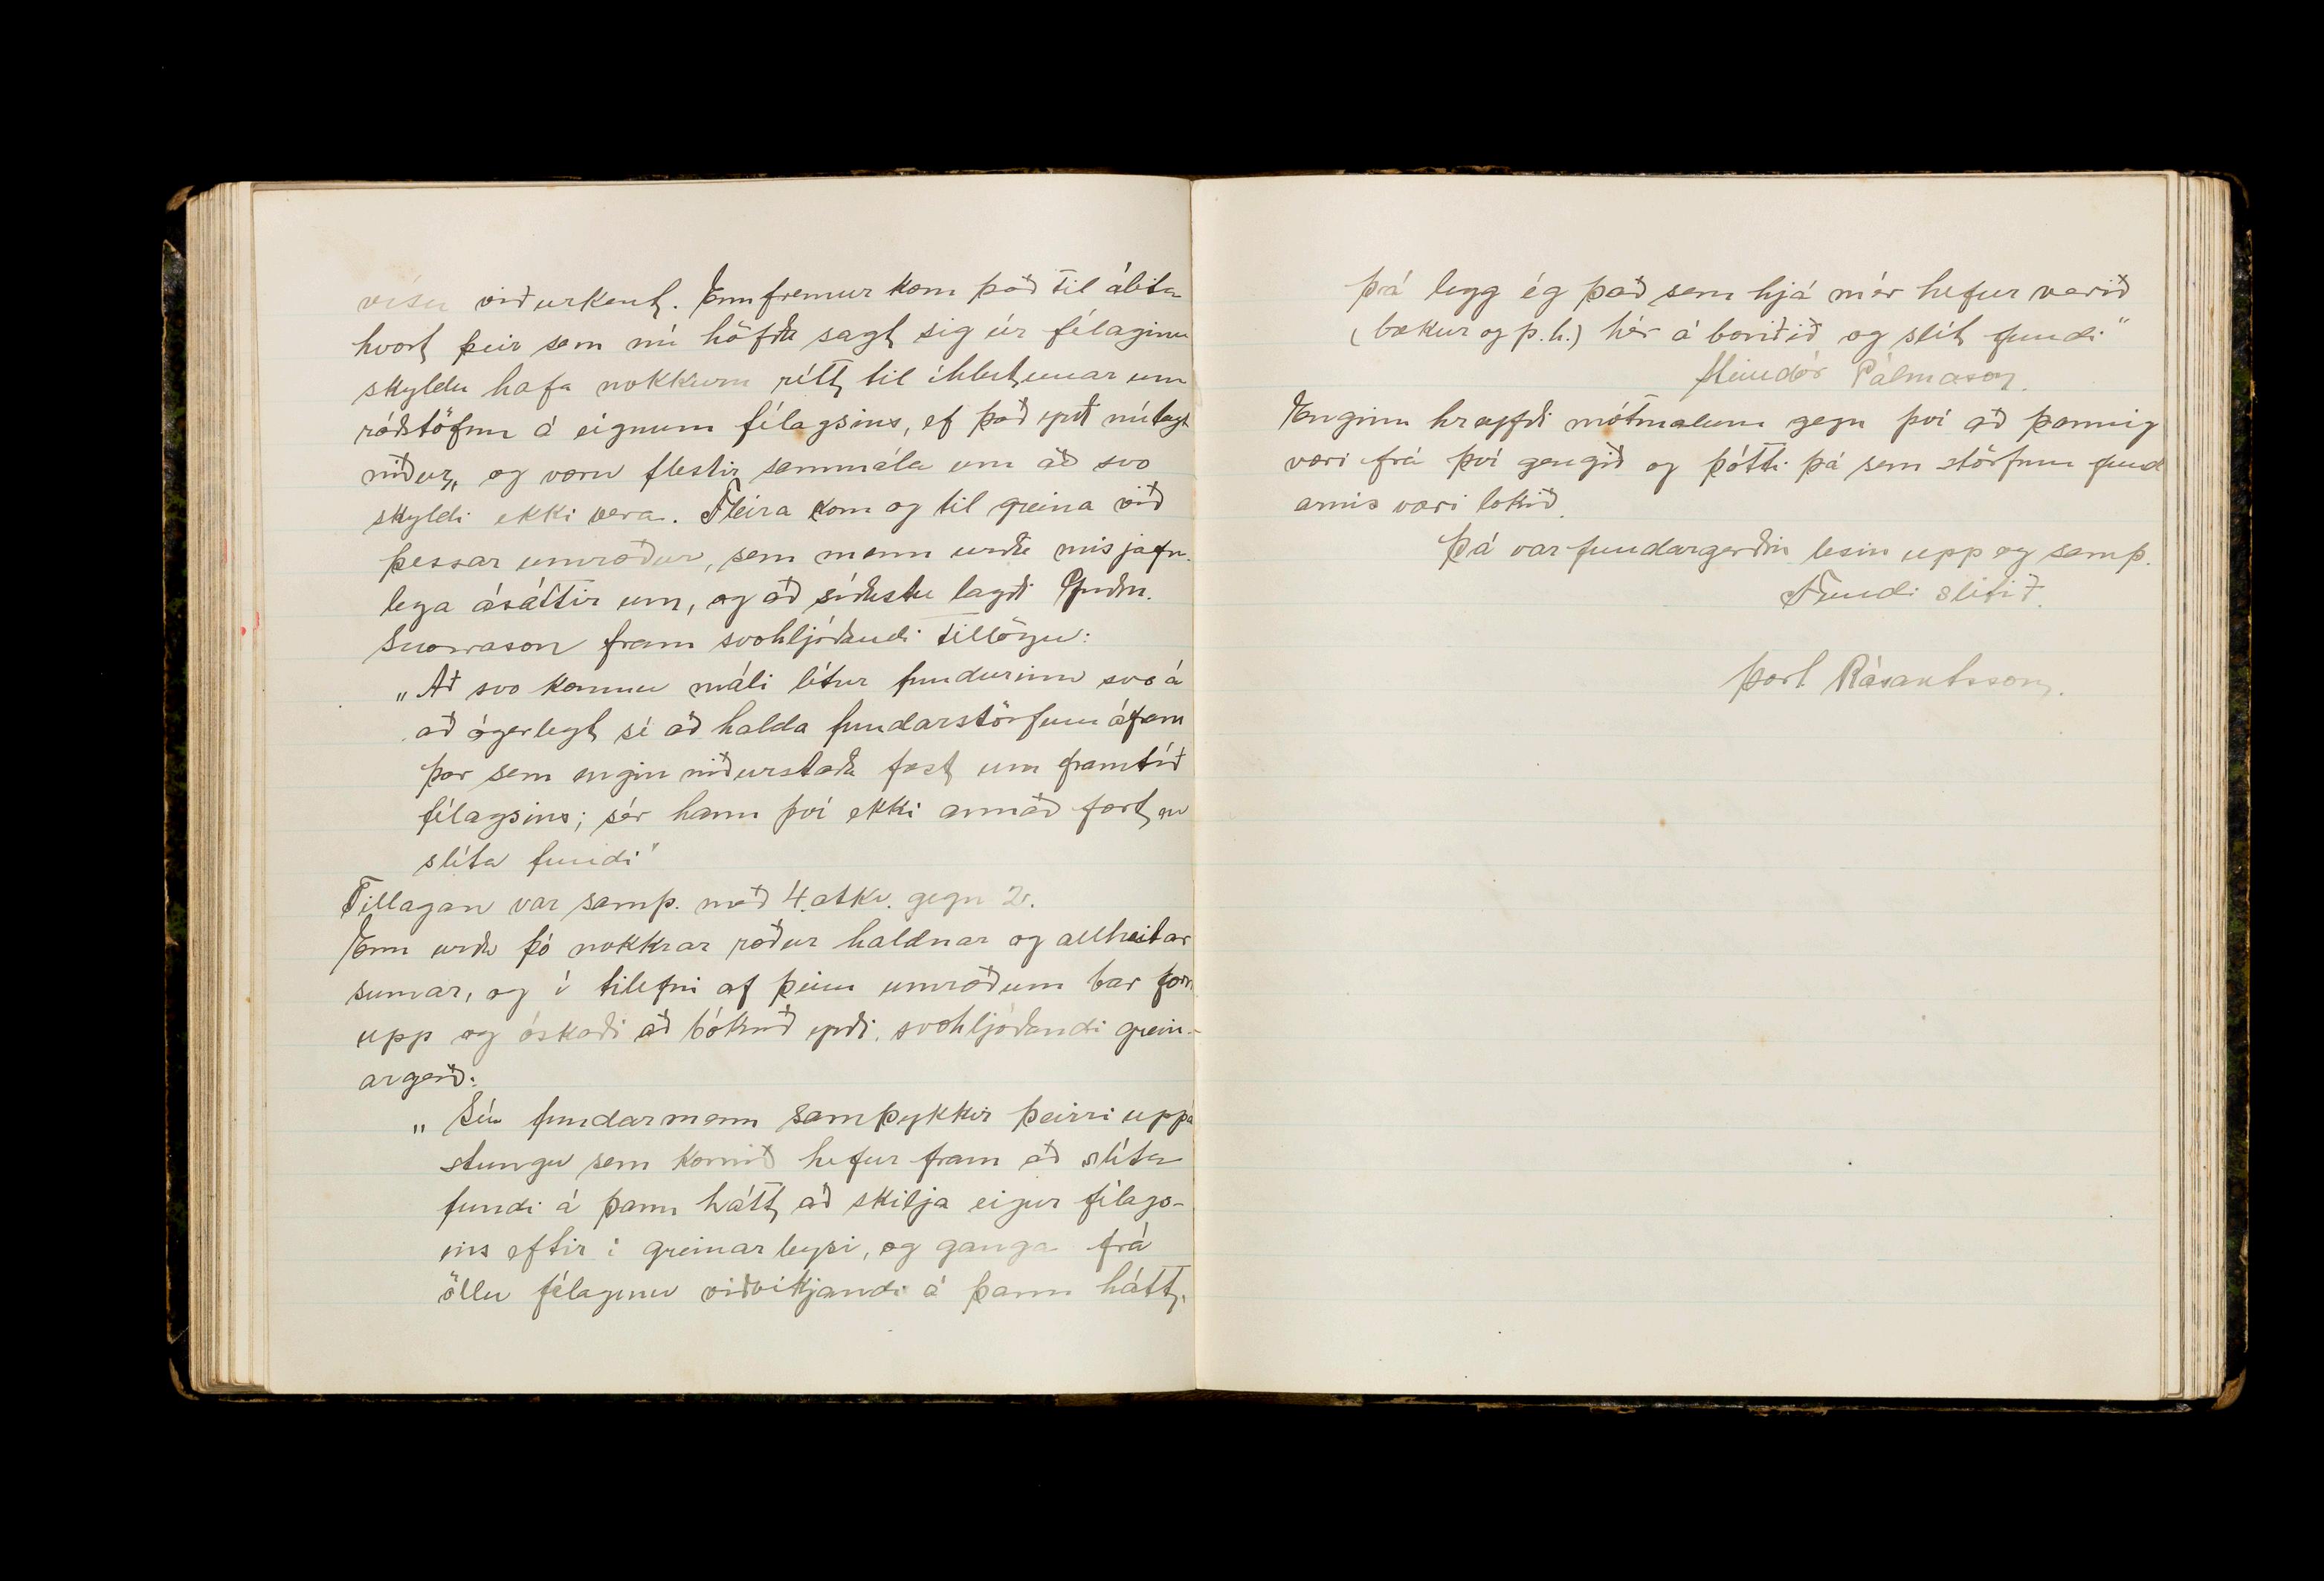 vísu viðurkent. Ennfremur kom það til álita
hvort þeir sem nú höfðu sagt sig úr félaginu
skyldu hafa nokkurn rétt til íhlutunar um
ráðstöfun á eignum félagsins, ef það yrði nú lagt
niður, og voru flestir sammála um að svo
skyldi ekki vera. Fleira kom og til greina við
þessar umræður, sem menn urðu misjafn-
lega ásáttir um, og að síðustu lagði Guðm.
Snorrason fram svohljóðandi tillögu:
„Að svo komnu máli lítur fundurinn svo á
að ógerlegt sé að halda fundarstörfum áfram
þar sem engin niðurstaða fæst um framtíð
félagsins; sér hann því ekki annað fært en
slíta fundi"
Tillagan var samþ. með 4 atkv. gegn 2.
Enn urðu þó nokkrar ræður haldnar og allheitar
sumar, og í tilefni af þeim umræðum bar form
upp og óskaði að bókuð yrði, svohljóðandi grein-
argerð:
„Séu fundarmenn samþykkir þeirri uppá
stungu sem komið hefur fram að slíta
fundi á þann hátt, að skilja eigur félags-
ins eftir í greinarleysi, og ganga frá
öllu félaginu viðvíkjandi á þann hátt,
þá legg ég það sem hjá mér hefur verið
(bækur og þ.h.) hér á borðið og slít fundi"
Steindór Pálmason.
Enginn hreyfði mótmælum gegn því að þannig
væri frá því gengið og þótti þá sem störfum fund
arins væri lokið.
Þá var fundargerðin lesin upp og samþ.
Fundi slitið.
Þorl. Rósantsson.